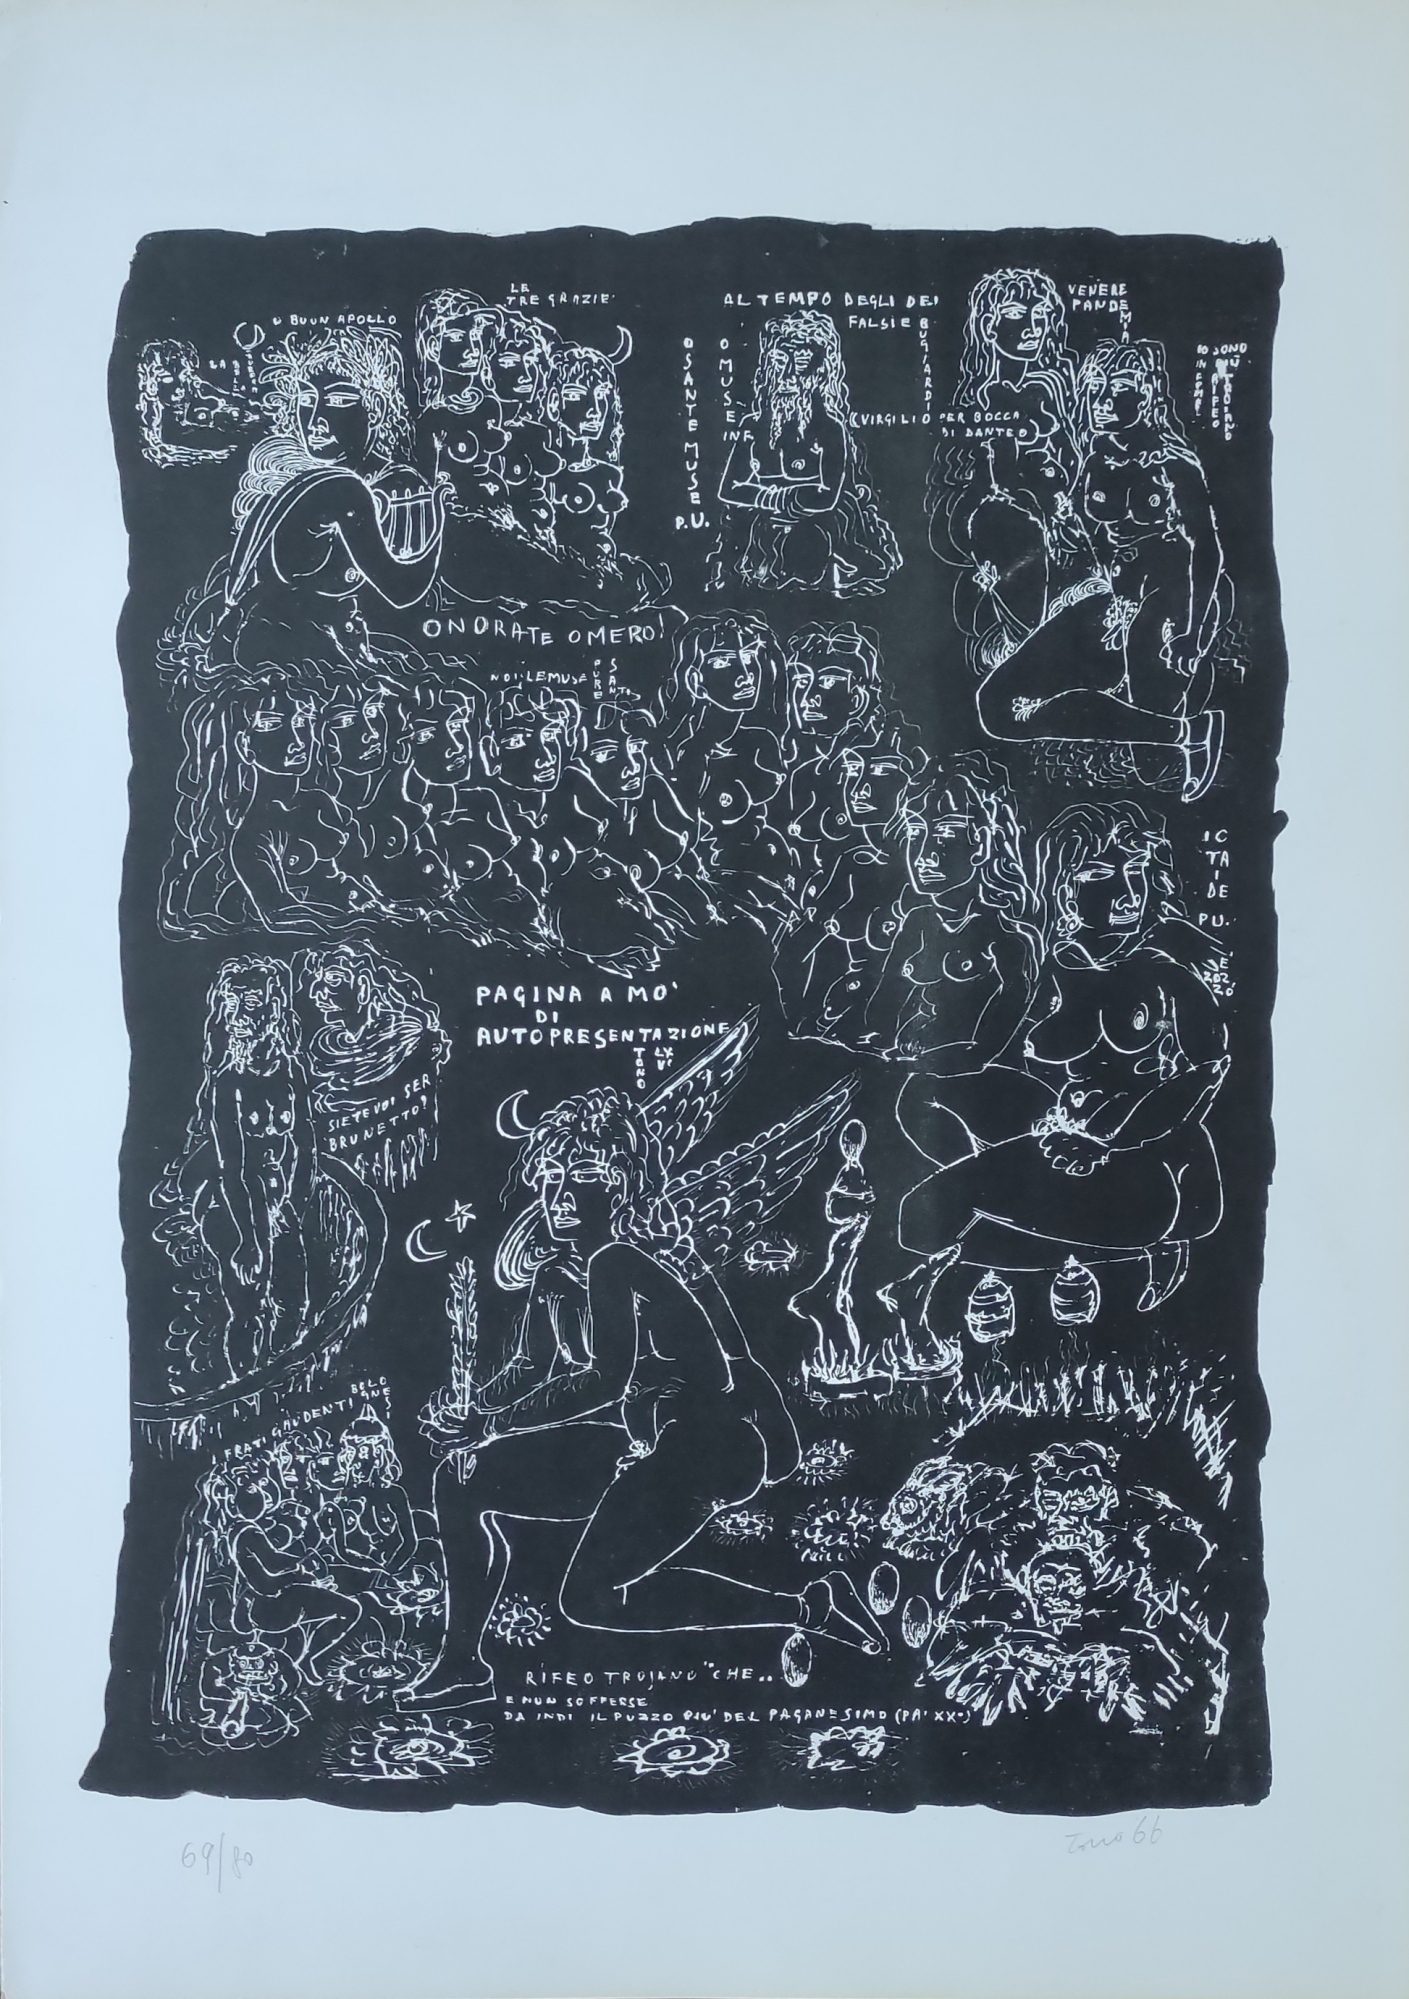 LE
TRE GRAZIE
O BUON APOLLO
LA
ONORATE OMERO!
O SANTE MUSE P.U.
O MUSE INF.
AL TEMPO DEGLI DEI
FALSI E BUGIARDI
(VIRGILIO PER BOCCA
DI DANTE)
VENERE
PANDEMIA
IO SONO
NOI LE MUSE PURE SANTE
TAIDE
PU.
PAGINA A MO'
DI
AUTOPRESENTAZIONE
TONO LXVI
SIETE VOI SER
BRUNETTO?
FRATI GAUDENTI BOLOGNESI
RIFEO TROJANO "CHE..
E NON SOFFERSE
DA INDI IL PUZZO PIU' DEL PAGANESIMO (PA' XX°)
69/80
Tono 66